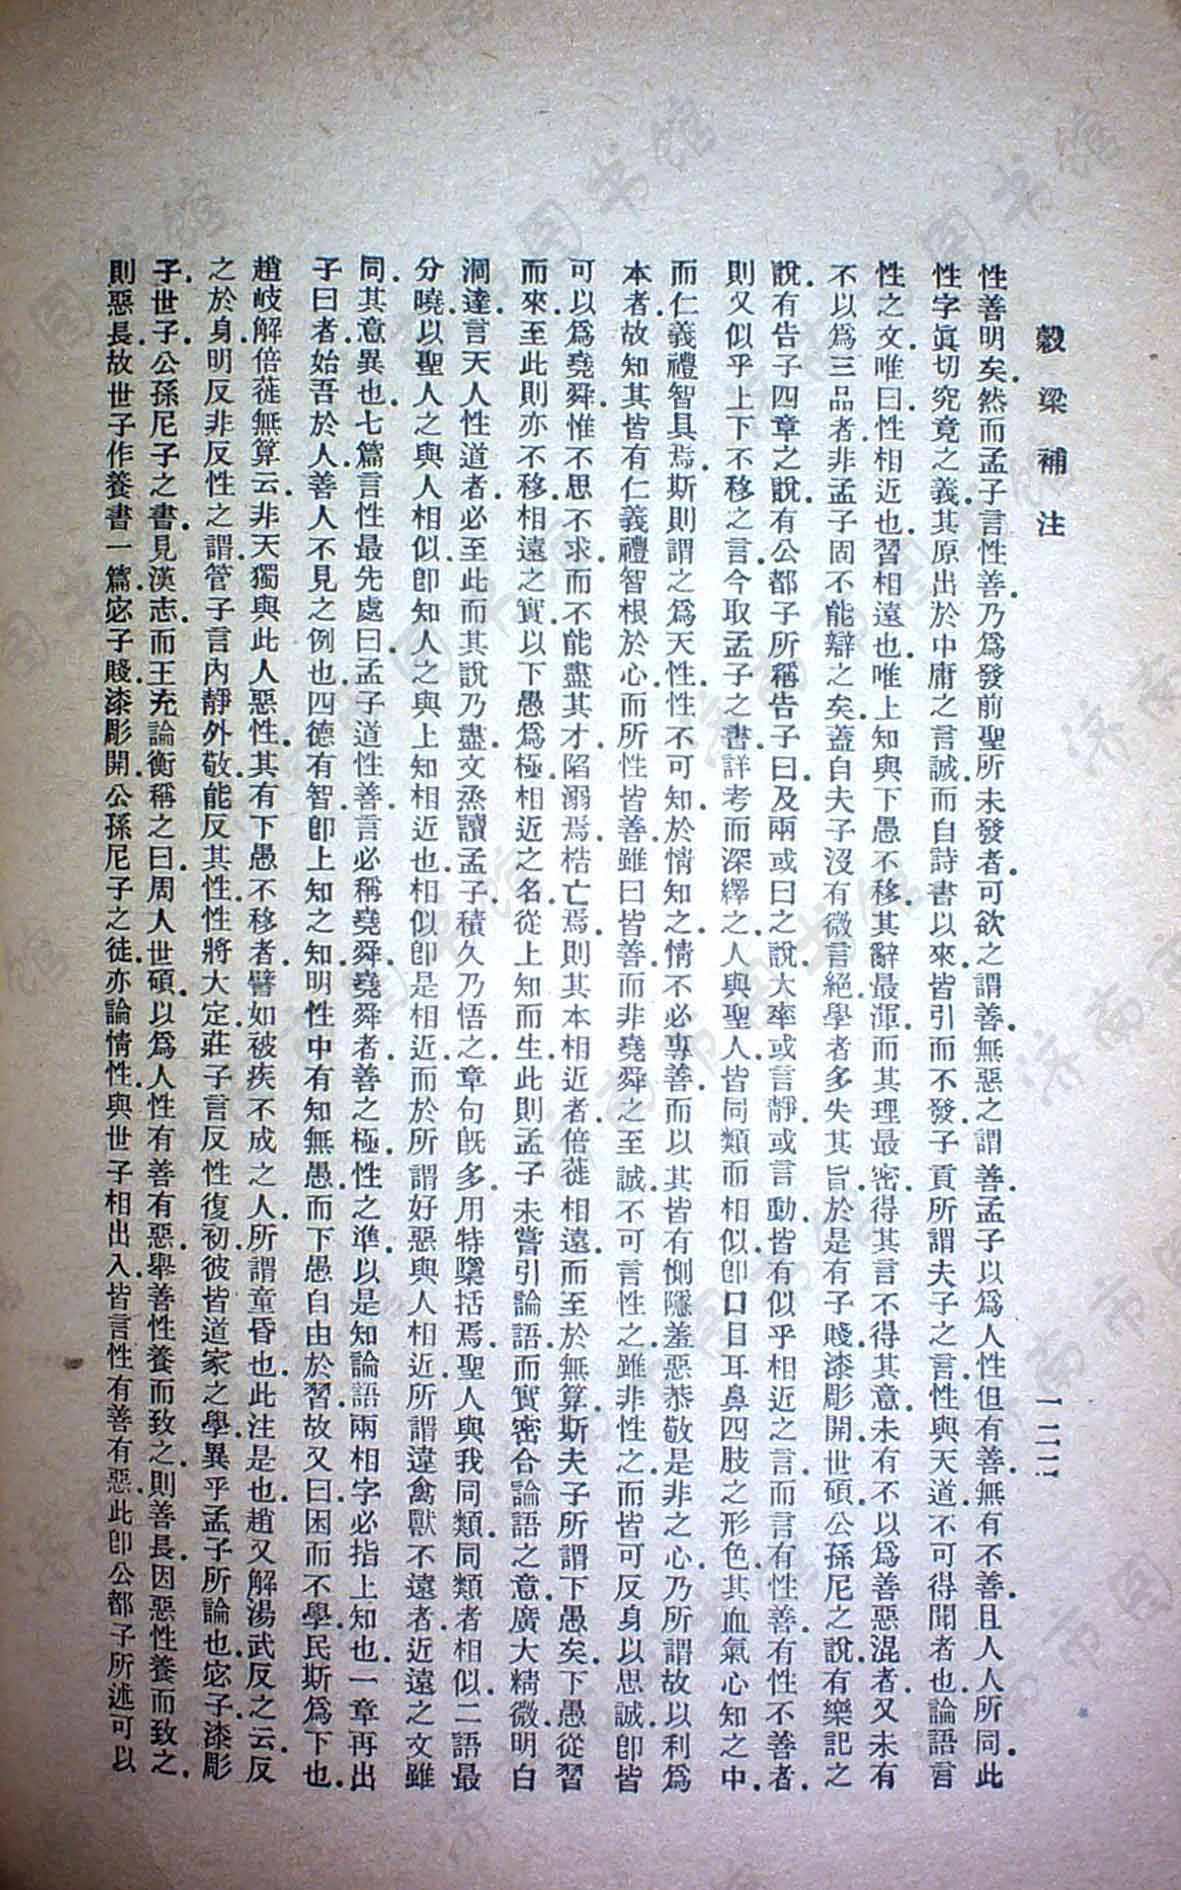 穀梁補注
一二二
性善明矣.然而孟子言性善.乃爲發前聖所未發者.可欲之謂善.無惡之謂善.孟子以爲人性但有善.無有不善.且人人所同.此
性字眞切究竟之義.其原出於中庸之言誠.而自詩書以來.皆引而不發.子貢所謂夫子之言性與天道.不可得聞者也.論語言
性之文.唯曰性相近也.習相遠也.唯上知與下愚不移.其辭最渾.而其理最密.得其言不得其意.未有不以爲善惡混者.又未有
不以爲三品者.非孟子固不能辯之矣.蓋自夫子沒有微言絕.學者多失其旨.於是有子賤漆彫開世碩公孫尼之說.有樂記之
說.有告子四章之說.有公都子所稱告子曰.及兩或曰之說.大率或言靜.或言動.皆有似乎相近之言.而言有性善.有性不善者.
則又似乎上下不移之言.今取孟子之書.詳考而深繹之.人與聖人.皆同類而相似.卽口目耳鼻四肢之形色.其血氣心知之中.
而仁義禮智具焉.斯則謂之爲天性.性不可知.於情知之.情不必專善.而以其皆有惻隱羞惡恭敬是非之心.乃所謂故以利爲
本者.故知其皆有仁義禮智根於心.而所性皆善.雖曰皆善.而非堯舜之至誠.不可言性之.雖非性之.而皆可反身以思誠.卽皆
可以爲堯舜.惟不思不求.而不能盡其才.陷溺焉.梏亡焉.則其本相近者.倍蓰相遠.而至於無算.斯夫子所謂下愚矣.下愚從習
而來.至此則亦不移.相遠之實.以下愚爲極.相近之名.從上知而生.此則孟子未嘗引論語.而實密合論語之意.廣大精微.明白
洞達.言天人性道者.必至此而其說乃盡.文烝讀孟子.積久乃悟之.章句旣多.用特櫽括焉.聖人與我同類.同類者相似.二語最
分曉.以聖人之與人相似.卽知人之與上知相近也.相似卽是相近.而於所謂好惡與人相近.所謂違禽獸不遠者.近遠之文雖
同.其意異也.七篇言性最先處.曰孟子道性善.言必稱堯舜.堯舜者.善之極.性之準.以是知論語兩相字.必指上知也.一章再出
子曰者.始吾於人.善人不見之例也.四德有智.卽上知之知.明性中有知無愚.而下愚自由於習.故又曰困而不學.民斯爲下也.
趙岐解倍蓰無算云.非天獨與此人惡性.其有下愚不移者.譬如被疾不成之人.所謂童昏也.此注是也.趙又解湯武反之云.反
之於身.明反非反性之謂.管子言內靜外敬.能反其性.性將大定.莊子言反性復初.彼皆道家之學.異乎孟子所論也.宓子漆彫
子.世子.公孫尼子之書.見漢志.而王充論衡稱之曰.周人世碩.以爲人性有善有惡.舉善性養而致之.則善長.因惡性養而致之.
則惡長.故世子作養書一篇.宓子賤漆彫開公孫尼子之徒.亦論情性.與世子相出入.皆言性有善有惡.此卽公都子所述可以